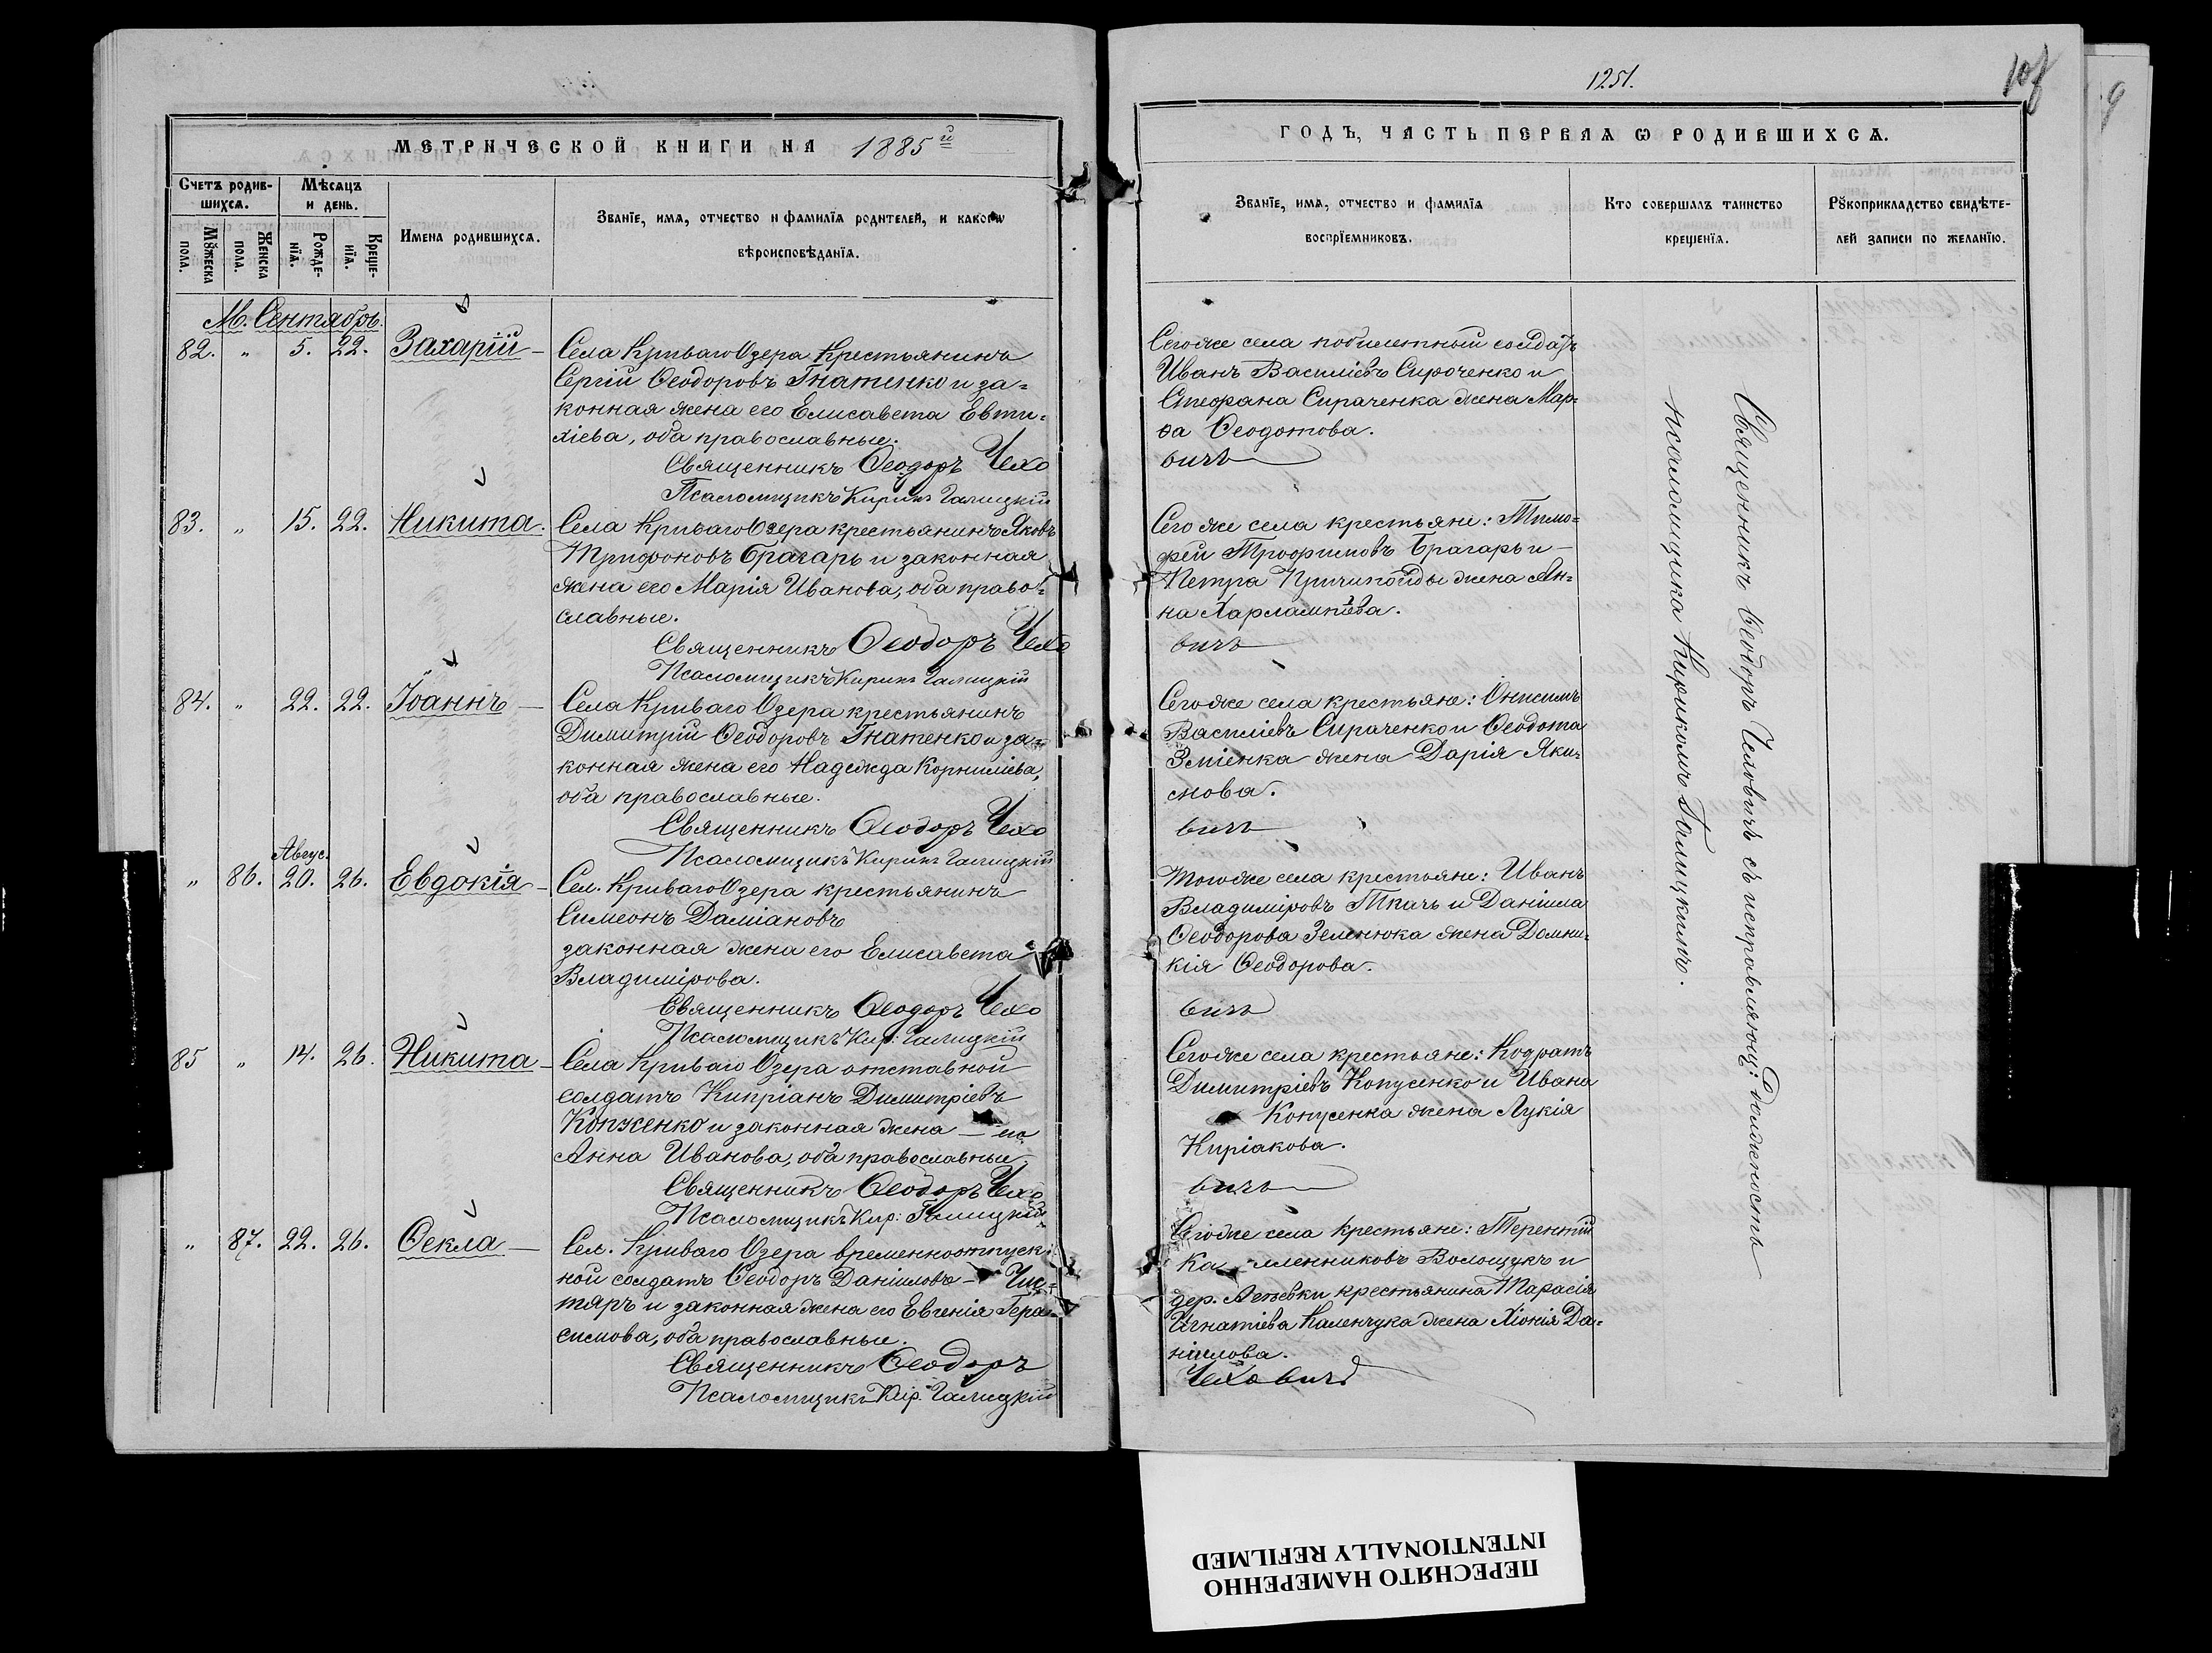 МЕТРИЧЕСКОЙ КНИГИ НА 1885й
Счетъ родив-
шихсѧ.
Мѣсѧцъ
и день.
Имена родившихсѧ.
Званїе, имѧ, отчество и фамилїѧ родителей, и какогѡ
вѣроисповѣданїѧ.
Мꙋжеска
пола.
Женска
пола.
Рожде-
нїѧ.
Креще-
нїѧ.
М. Сентябрь.
82. " 5. 22. Захарій –
Села Криваго Озера Крестьянинъ
Сергій Ѳеодоровъ Гнатенко и за=
конная жена его Елисавета Евти=
хіева, оба православные.
Священникъ Ѳеодоръ Чехо
Псаломщикъ Кирик Галицкій
83. " 15. 22. Никита.
Села Криваго Озера крестьянинъ Яковъ
Трифоновъ Брагарь и законная
жена его Марія Иванова, оба право=
славные.
Священникъ Ѳеодоръ Чехо
Псаломщикъ Кирик Галицкій
84. " 22. 22. Іоаннъ –
Села Криваго Озера крестьянинъ
Димитрій Ѳеодоровъ Гнатенко и за=
конная жена его Надежда Корниліева,
оба православные.
Священникъ Ѳеодоръ Чехо
Псаломщикъ Кирик Галицкій
Авгус.
" 86. 20. 26. Евдокія –
Сел. Криваго Озера крестьянинъ
Симеонъ Даміановъ
законная жена его Елисавета
Владимірова.
Священникъ Ѳеодоръ Чехо
Псаломщикъ Кир: Галицкій
85 " 14. 26. Никита –
Села Криваго Озера отставной
солдатъ Кипріанъ Димитріевъ
и законная жена – его
Анна Иванова, оба православные.
Священникъ Ѳеодоръ Чехо
Псаломщикъ Кир: Галицкій
" 87. 22. 26. Ѳекла –
Сел. Криваго Озера временноотпуск=
ной солдатъ Ѳеодоръ Даніиловъ –
и законная жена его Евгенія Гера=
симова, оба православные.
Священникъ Ѳеодоръ
Псаломщикъ Кир. Галицкій
1251.
ГОДЪ, ЧАСТЬ ПЕРВАѦ Ѡ РОДИВШИХСѦ.
Званїе, имѧ, отчество и фамилїѧ
воспрїемниковъ.
Кто совершалъ таинство
крещенїѧ.
Рꙋкоприкладство свидѣте-
лей записи по желанїю.
Сегоже села побилетный солдатъ
Иванъ Василіевъ Сироченко и
Стефана Сираченка жена Мар=
ѳа Ѳеодотова.
вичъ
Сегоже села крестьяне: Тимо=
фей Трофимовъ Брагарь и –
Петра жена Ан=
на Харлампіева.
вичъ
Сегоже села крестьяне: Онисимъ
Василіевъ Сираченко и Ѳеодота
Зміенка жена Дарія Яки=
мова.
вичъ
Тогоже села крестьяне: Иванъ
Владиміровъ Ткачъ и Даніила
Ѳеодорова Зеленюка жена Домни=
кія Ѳеодорова.
вичъ
Сегоже села крестьяне: Кодратъ
Димитріевъ Копусенко и Ивана
Копусенка жена Лукія
Киріакова.
вичъ
Сегоже села крестьяне: Терентій
Волощукъ и
дер. крестьянина Тарасія
Игнатіева Каленчука жена Хіонія Да=
ніилова.
Чеховичъ
Священникъ Ѳеодоръ Чеховичъ съ исправляющ: должность
псаломщика Кирикомъ Галицкимъ.
ПЕРЕСНЯТО НАМЕРЕННО
INTENTIONALLY REFILMED